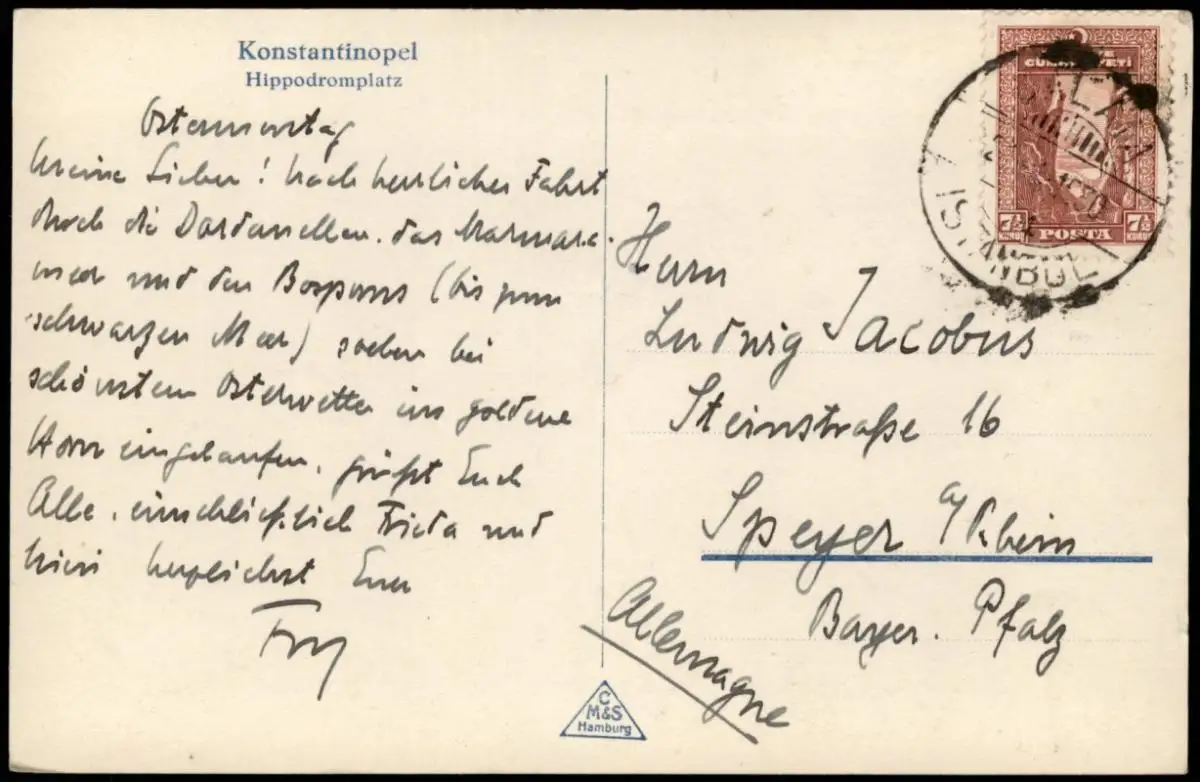 Konstantinopel
Hippodromplatz
Ostermontag
Meine Lieben! Nach herrlicher Fahrt
durch die Dardanellen, das Marmara-
meer und den Bosporus (bis zum
schwarzen Meer) soeben bei
schönstem Osterwetter ins goldene
Horn eingelaufen, grüßt Euch
Alle, einschließlich Frieda und
herzlichst Euer
Herrn
Ludwig Jacobus
Steinstraße 16
Speyer a/Rhein
Bayer. Pfalz
Allemagne
C
M&S
Hamburg
7½ POSTA 7½
GALATA
1930
ISTANBUL